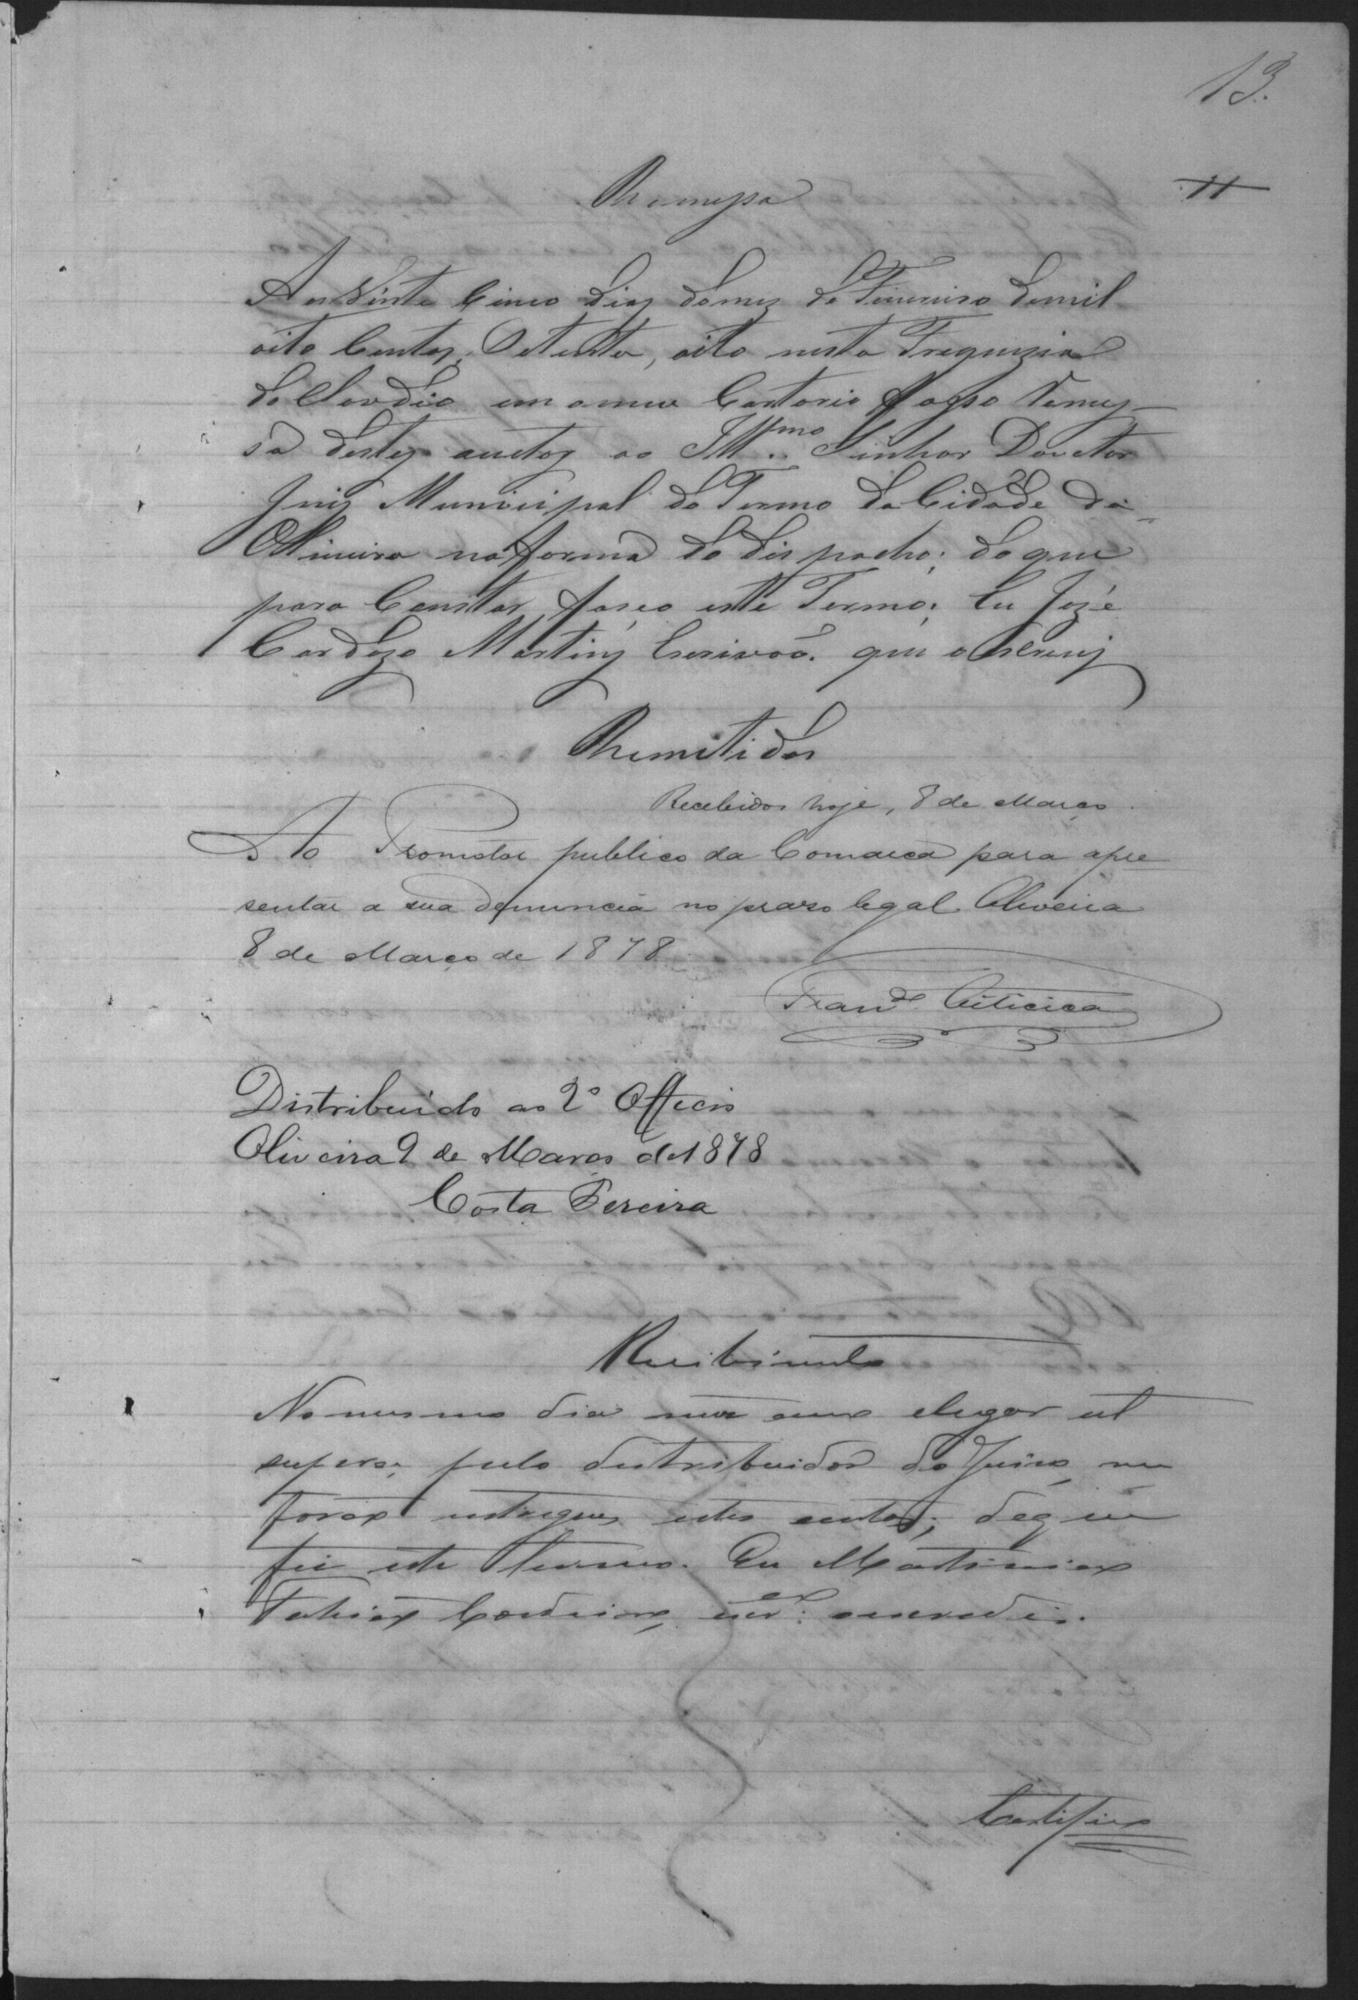 13.
11
Remessa
Aos Vinte Cinco dias do mez de Fivireiro de mil
oito Centos, Setenta, oito nesta Freguezia
do Claudio em o meu Cartorio faço Remes-
sa destes auctos ao Ill.mo Sinhor Douctor
Juiz Municipal do Termo da Cidade da
Olliveira na forma do dispacho; do que
para Constar faço este Termo; Eu Jozé
Cardozo Martins Escrivão. que o escrevy
Remetidos
Recebidos hoje, 8 de Março.
D. Ao Promotor publico da Comarca para apre
sentar a sua denuncia no praso legal Oliveira
8 de Março de 1878.
Fran.do Citicica
Distribuido ao 2º Officio
Oliveira 9 de Março de 1878
Costa Pereira
Recibimento
No mesmo dia mez anno e lugar ut
supra; pelo distribuidor do Juizo, me
forão entregues estes autos; de que
fiz este termo. Eu Martiniano
Cordeiro, escr.ão escrevi.
Certifico